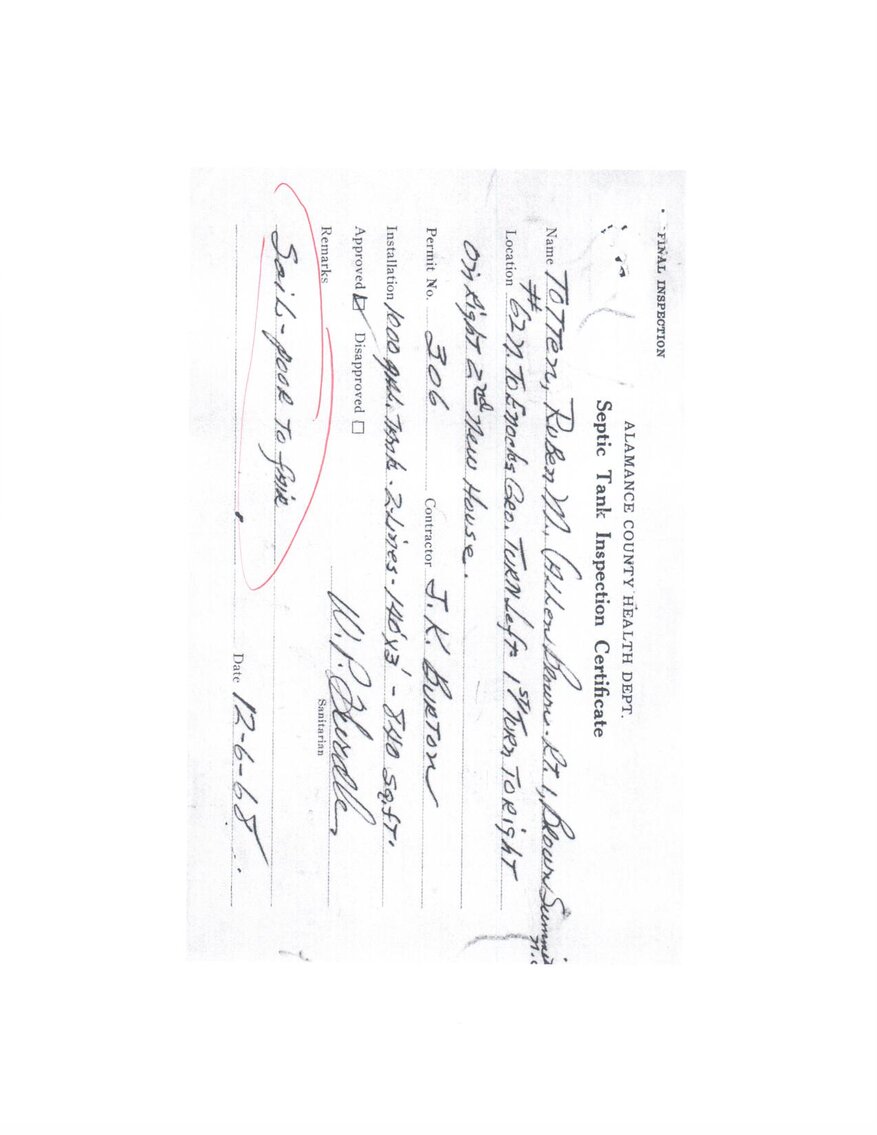 FINAL INSPECTION
ALAMANCE COUNTY HEALTH DEPT.
Septic Tank Inspection Certificate
Name Totten, Ruben M. Brown - Rt. 1, Brown Summit N.C
Location #62 N. To Enocks Gro. Turn Left - 1st Turn To Right
on Right 2nd New House.
Permit No. 306 Contractor J. K. Burton
Installation 1000 gal. Tank - 2 Lines - 140'x3' - 840 Sq.ft.
Approved ☑ Disapproved ☐
W. P.
Remarks Sanitarian
Soil - poor to fair
Date 12-6-68